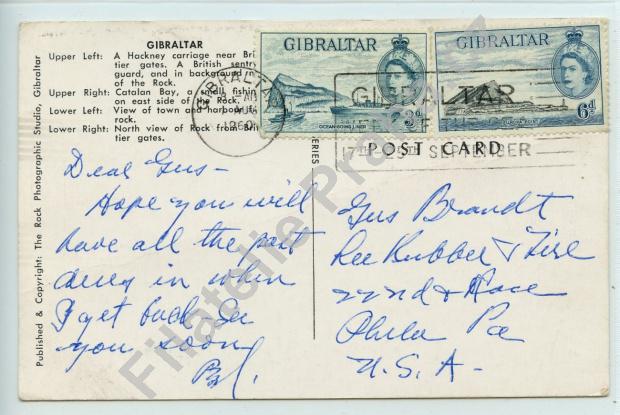 GIBRALTAR
Upper Left: A Hackney carriage near Bri
tier gates. A British sentry
guard, and in background
of the Rock.
Upper Right: Catalan Bay, a small fishin
on east side of the Rock.
Lower Left: View of town and harbour
rock.
Lower Right: North view of Rock from Bri
tier gates.
Published & Copyright: The Rock Photographic Studio, Gibraltar
SERIES
GIBRALTAR
OCEAN GOING LINER
GIBRALTAR
EUROPA POINT
6d
GIBRALTAR
GIBRALTAR
SEPTEMBER
POST CARD
Dear Gus –
Hope you will
have all the
in when
I get back. See
you soon
Gus Brandt
Lee Rubber & Tire
22nd & Race
Phila Pa
U.S.A –
Filatelie